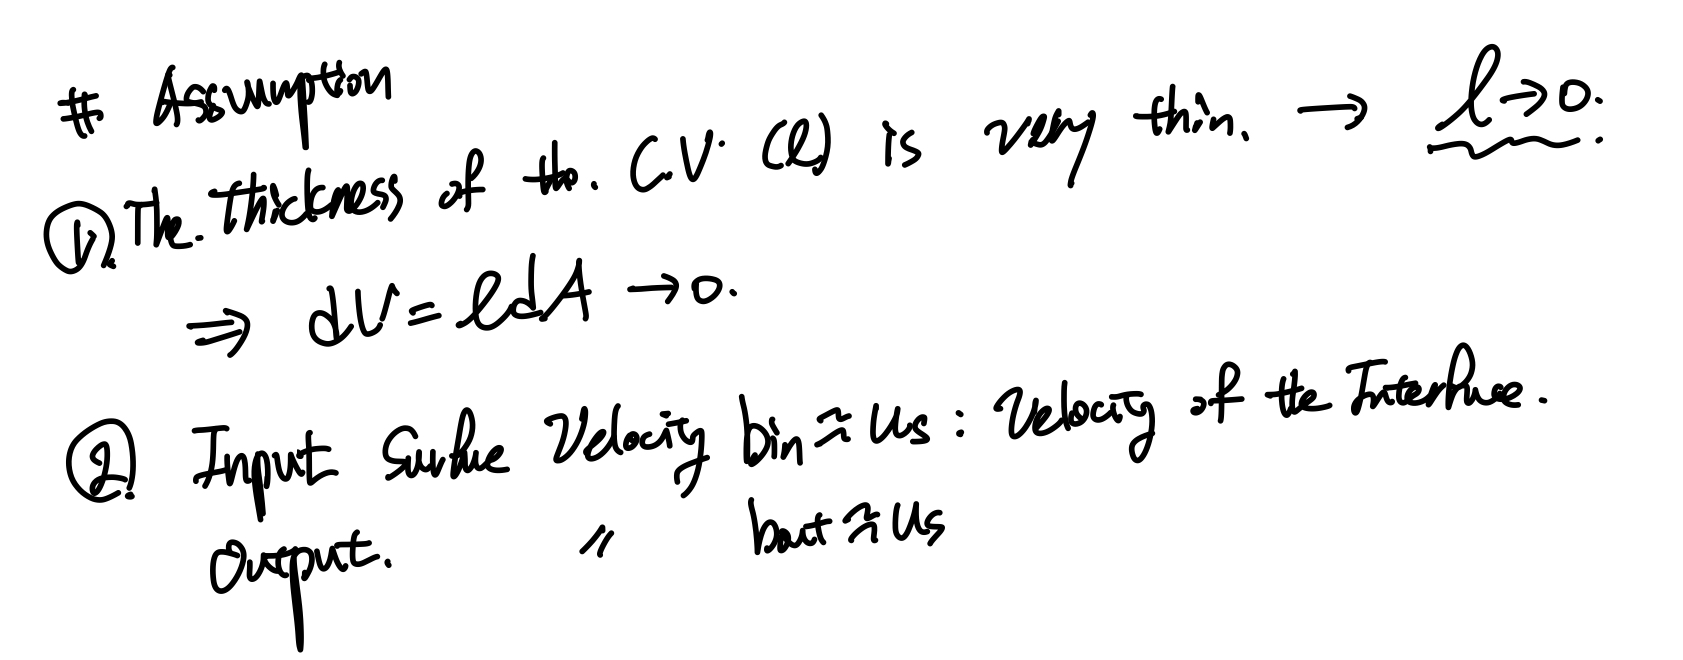 # Assumption
①. The. thickness of the. C.V. (l) is very thin. → l→0.
⇒ dV = ldA → 0.
②. Input Surface Velocity bin ≈ us : Velocity of the Interface.
Output. 〃 bout ≈ us